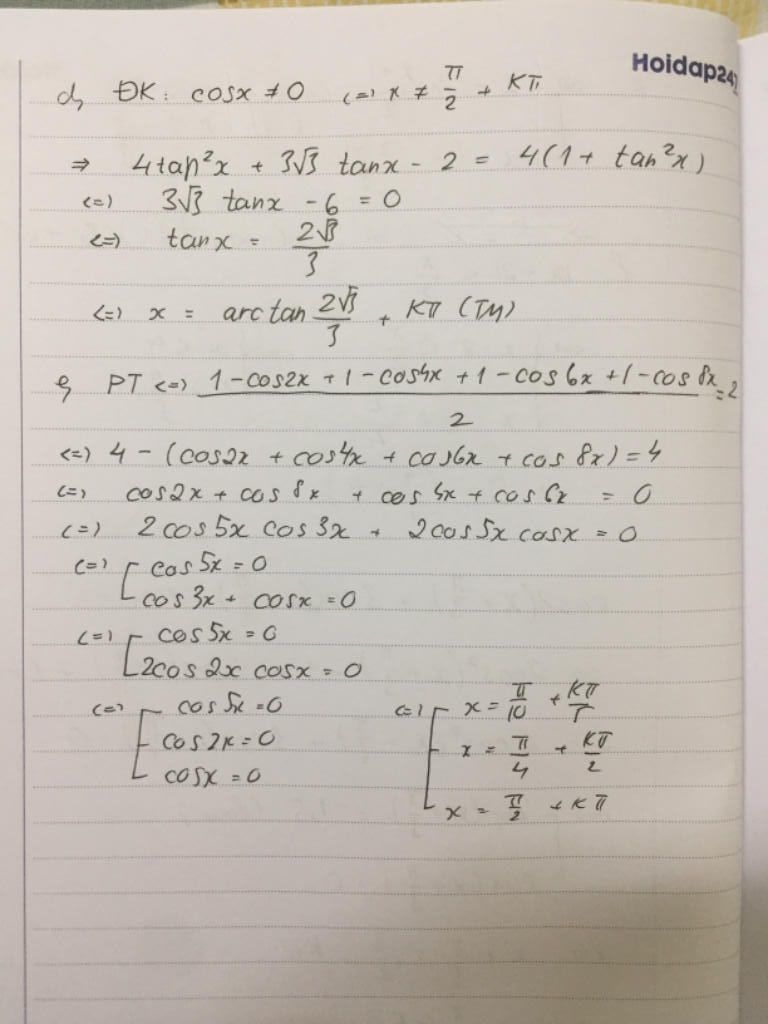 Hoidap247
d, ĐK: cosx ≠ 0 (=) x ≠ π/2 + Kπ
⇒ 4tan²x + 3√3 tanx - 2 = 4(1 + tan²x)
(=) 3√3 tanx - 6 = 0
(=) tanx = 2√3/3
(=) x = arctan 2√3/3 + Kπ (TM)
PT (=) (1 - cos2x + 1 - cos4x + 1 - cos6x + 1 - cos8x)/2 = 2
(=) 4 - (cos2x + cos4x + cos6x + cos8x) = 4
(=) cos2x + cos8x + cos4x + cos6x = 0
(=) 2cos5x cos3x + 2cos5x cosx = 0
(=) [ cos5x = 0
cos3x + cosx = 0
(=) [ cos5x = 0
2cos2x cosx = 0
(=) [ cos5x = 0 (=) [ x = π/10 + Kπ/5
cos2x = 0 x = π/4 + Kπ/2
cosx = 0 x = π/2 + Kπ